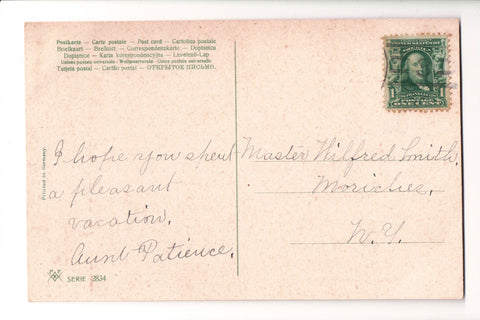 Postkarte — Carte postale — Post card — Cartolina postale
Briefkaart — Brefkort — Correspondenzkarte — Dopisnica
Dopisnice — Karta korespondencyjna — Levelező-Lap
Unione postale universale - Weltpostverein - Union postale universelle
Tarjeta postal — Cartão postal — ОТКРЫТОЕ ПИСЬМО.
UNITED STATES OF AMERICA
FRANKLIN
1 POSTAGE 1
ONE CENT
I hope you spent
a pleasant
vacation.
Aunt Patience.
Master Wilfred Smith.
Moriches,
N.Y.
Printed in Germany.
SERIE 2834